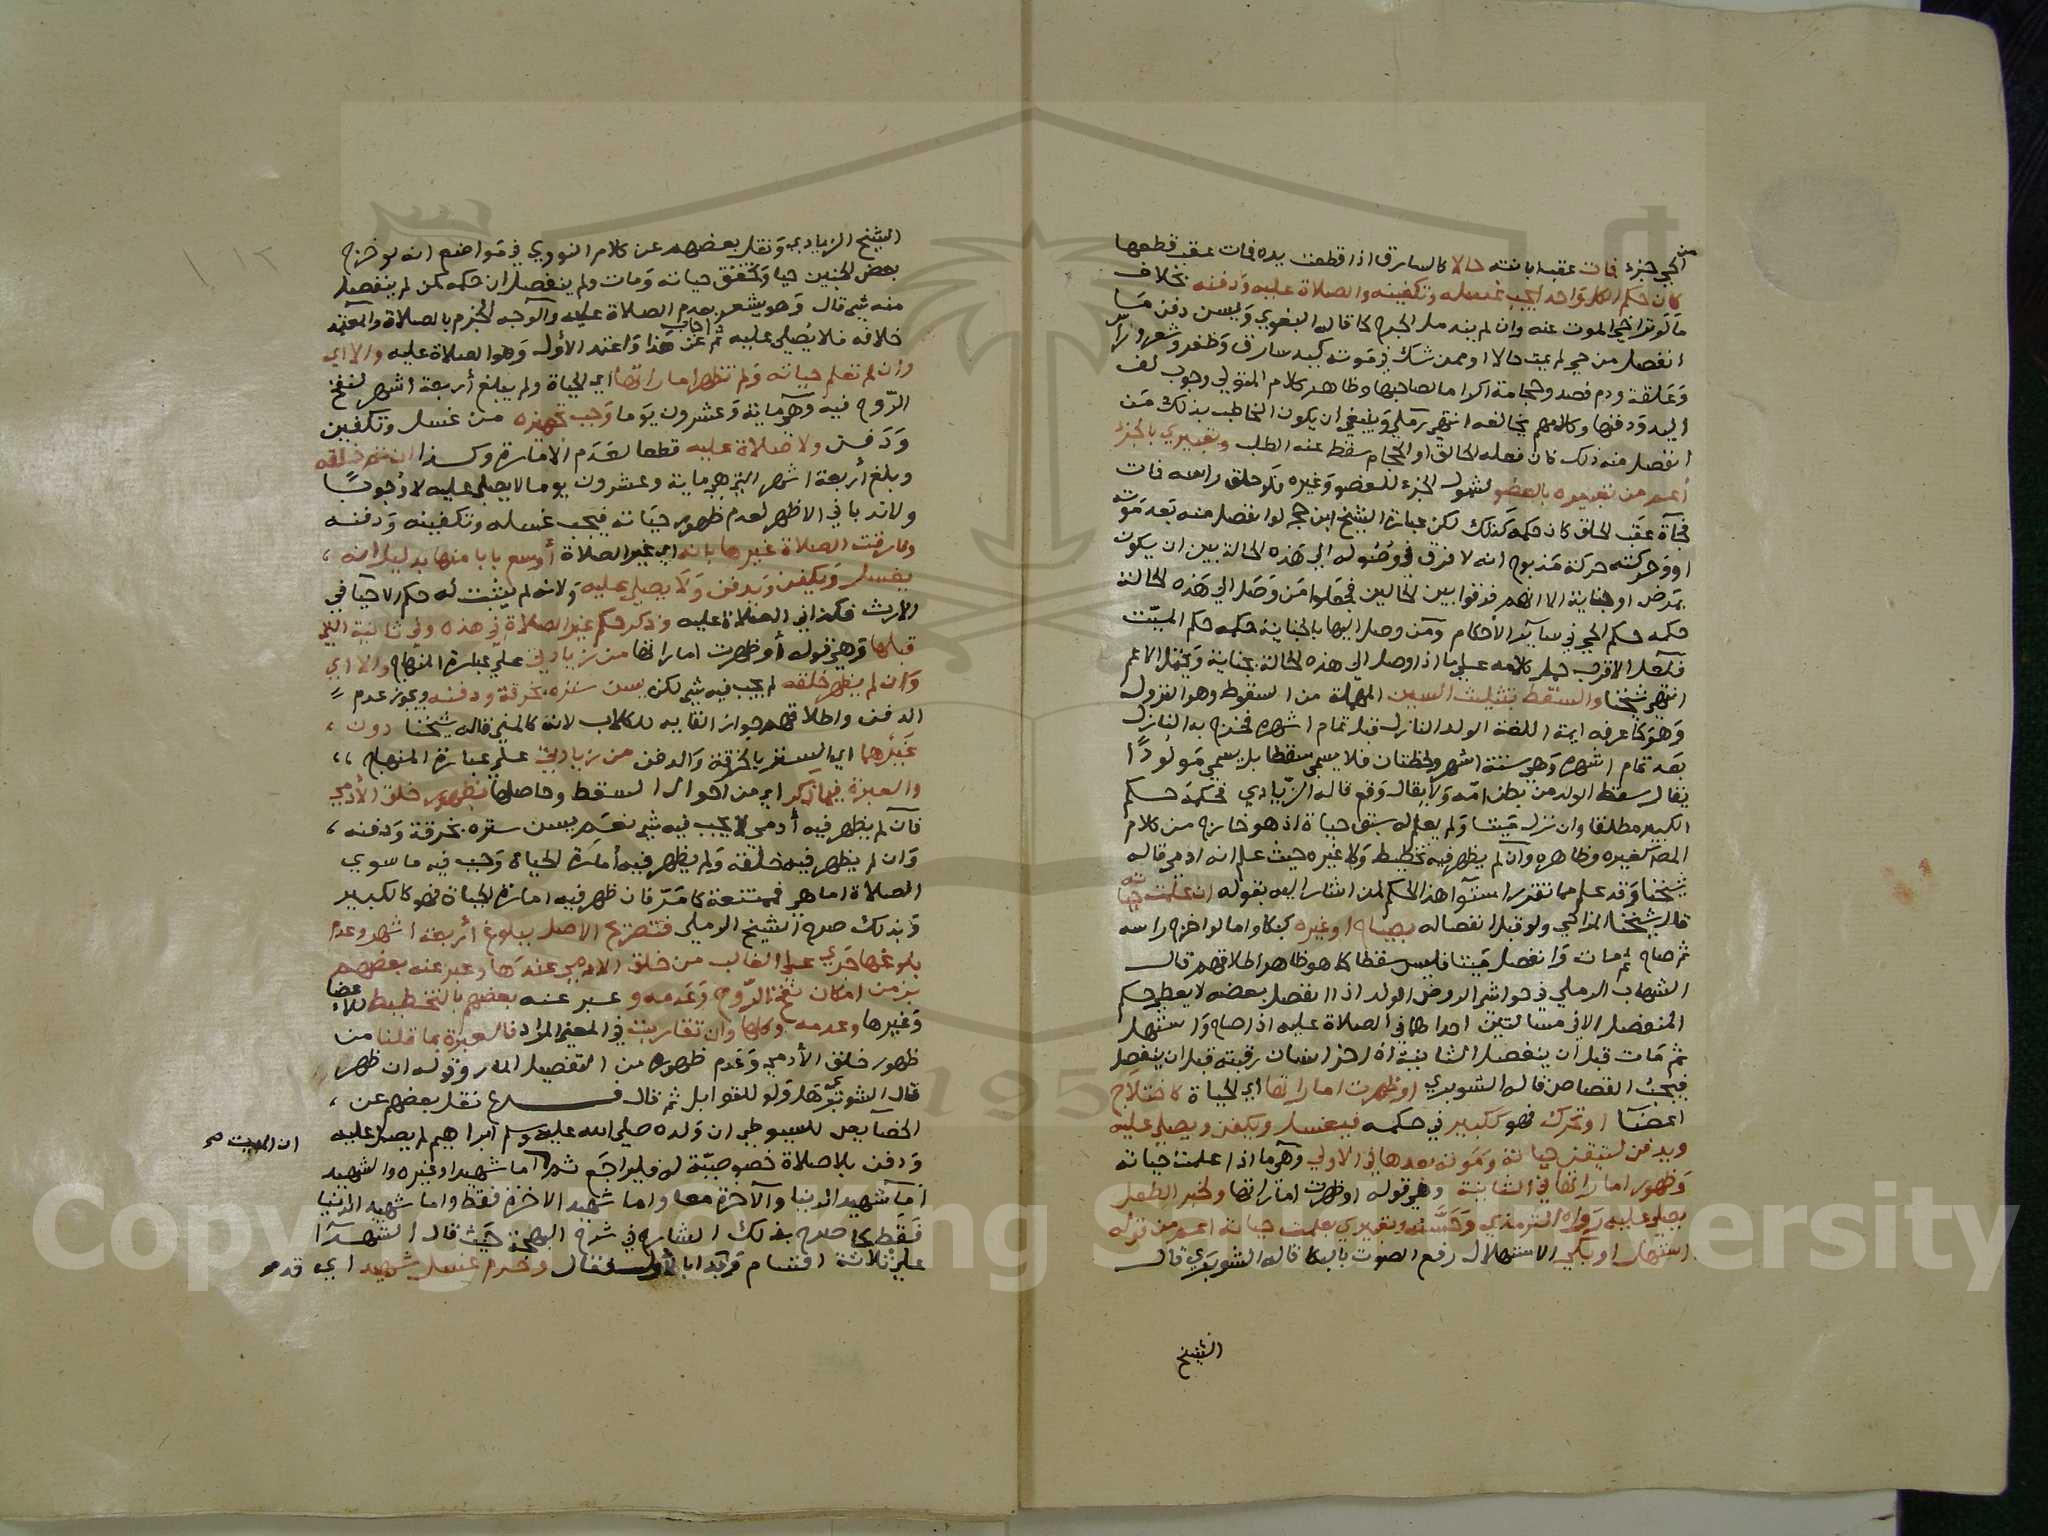 من
الحي جزء فمات عقب ابانته حالا كالسارق اذا قطعت يده فمات عقب قطعها
كان حكم الكل واحدا يجب غسله وتكفينه والصلاة عليه ودفنه بخلاف
ما لو تراخى الموت عنه وان لم يندمل الجرح كما قاله البغوي ويسن دفن ما
انفصل من حي لم يمت حالا او ممن شك في موته كيد سارق وظفر وشعر
وعلقة ودم فصد وحجامة اكراما لصاحبها وظاهر كلام المتولي وجوب لف
اليد ودفنها وكلامهم يخالفه انتهى رملي وينبغي ان يكون المخاطب بذلك من
انفصل منه ذلك فان فعله الحالق او الحجام سقط عنه الطلب وتعبيري بالجزء
أعم من تعبيره بالعضو لشمول الجزء للعضو وغيره فلو حلق راسه فمات
فجأة عقب الحلق كان حكمه كذلك لكن عبارة الشيخ ابن حجر لو انفصل منه بعد موته
او وحركته حركة مذبوح انه لا فرق في وصوله الى هذه الحالة بين ان يكون
بمرض او جناية الا انهم فرقوا بين الحالين فجعلوا من وصل الى هذه الحالة
حكمه حكم الحي في سائر الأحكام ومن وصل اليها بالجناية حكمه حكم الميت
فلعل الاقرب حمل كلامه على ما اذا وصل الى هذه الحالة بجناية ويحتمل الاعم
انتهى شيخنا والسقط بتثليث السين المهملة من السقوط وهو النزول
وهو كما عرفه ايمة اللغة الولد النازل قبل تمام اشهره فخرج به النازل
بعد تمام اشهره وهي ستة اشهر ولحظتان فلا يسمى سقطا بل يسمى مولودًا
يقال سقط الولد من بطن امه ولا يقال وقع قاله الزيادي فحكمه حكم
الكبير مطلقا وان نزل ميتا ولم يعلم له سبق حياة اذ هو خارج من كلام
المص كغيره وظاهره وان لم يظهر فيه تخطيط ولا غيره حيث علم انه ادمي قاله
شيخنا وقد علم مما تقرر استوآ هذا الحكم لمن اشار اليه بقوله ان علمت حياته
قال شيخنا المزاحي ولو قبل انفصاله بصياح او غيره كبكاء واما لو اخرج راسه
ثم صاح ثم مات وانفصل ميتا فليس سقطا كما هو ظاهر اطلاقهم قال
الشهاب الرملي في حواشي الروض الولد اذا انفصل بعضه لا يعطى حكم
المنفصل الا في مسالتين احداهما في الصلاة عليه اذا صاح واستهل
ثم مات قبل ان ينفصل الثانية اذا حز انسان رقبته قبل ان ينفصل
فيجب القصاص قاله الشوبري او ظهرت اماراتها اي الحياة كاختلاج
اعضآ او تحرك فهو ككبير في حكمه فيغسل ويكفن ويصلى عليه
ويدفن لتيقن حياته وموته بعدها في الاولى وهي ما اذا علمت حياته
وظهور اماراتها في الثانية وهي قوله او ظهرت اماراتها ولخبر الطفل
يصلى عليه رواه الترمذي وحسنه وتعبيري بعلمت حياته اعم من قوله
استهل او بكى الاستهلال رفع الصوت بالبكا قاله الشوبري قال
الشيخ
الشيخ الزيادي ونقل بعضهم عن كلام النووي في مواضع انه لو خرج
بعض الجنين حيا وتحقق حياته ومات ولم ينفصل ان حكمه كمن لم ينفصل
منه شي قال وهو يشعر بعدم الصلاة عليه والاوجه الجزم بالصلاة والمعتمد
خلافه فلا يصلى عليه ثم اجاب عن هذا واعتمد الأول وهو الصلاة عليه والا اي
وان لم تعلم حياته ولم تظهر اماراتها اي الحياة ولم يبلغ أربعة اشهر لنفخ
الروح فيه وهي ماية وعشرون يوما وجب تجهيزه من غسل وتكفين
ودفن ولا صلاة عليه قطعا لعدم الامارة وكذا ان ظهر خلقه
وبلغ أربعة اشهر التي هي ماية وعشرون يوما لا يصلى عليه لا وجوبًا
ولا ندبا في الاظهر لعدم ظهور حياته فيجب غسله وتكفينه ودفنه
وفارقت الصلاة غيرها بانه اي غير الصلاة أوسع بابا منها بدليل انه
يغسل ويكفن ويدفن ولا يصلى عليه ولانه لم يثبت له حكم الاحيا في
الارث فكذا في الصلاة عليه وذكر حكم غير الصلاة في هذه وفي ثانية التي
قبلها وهي قوله أو ظهرت اماراتها من زيادتي على عبارة المنهاج والا اي
وان لم يظهر خلقه لم يجب فيه شي لكن يسن ستره بخرقة ودفنه ويجوز عدم
الدفن واطلاقهم جواز القايه للكلاب لانه كالمني قاله شيخنا دون
غيرهما اي الستر بالخرقة والدفن من زيادتي على عبارة المنهاج
والعبرة فيما ذكر اي من احوال السقط وحاصلها بظهور خلق الآدمي
فان لم يظهر فيه أدمي لا يجب فيه شي نعم يسن ستره بخرقة ودفنه
وان لم يظهر فيه خلقه ولم يظهر فيه أمارة الحياة وجب فيه ما سوى
الصلاة اما هي فممتنعة كما مر فان ظهر فيه امارة الحياة فهو كالكبير
وبذلك صرح الشيخ الرملي فتصريح الاصل ببلوغ أربعة اشهر وعدم
بلوغها جرى على الغالب من خلق الادمي عندها وعبر عنه بعضهم
بزمن امكان نفخ الروح وعدمه وعبر عنه بعضهم بالتخطيط للاعضا
وغيرها وعدمه وكلها وان تقاربت في المعنى المراد فالعبرة بما قلنا من
ظهور خلق الأدمي وعدم ظهوره من التفصيل المار وقوله ان ظهر
قال الشوبري هلا ولو للقوابل ثم قال فرع نقل بعضهم عن
الخصايص للسيوطي ان ولده صلى الله عليه وسلم ابراهيم لم يصل عليه
ودفن بلا صلاة خصوصية له فليراجع ثم اما شهيد او غيره والشهيد
أما شهيد الدنيا والآخرة معا واما شهيد الاخرة فقط واما شهيد الدنيا
فقط كما صرح بذلك الشارح في شرح البهجة حيث قال الشهدآ
على ثلاثة اقسام وبدا بالأول فقال وحرم غسل شهيد اي
ان الميت